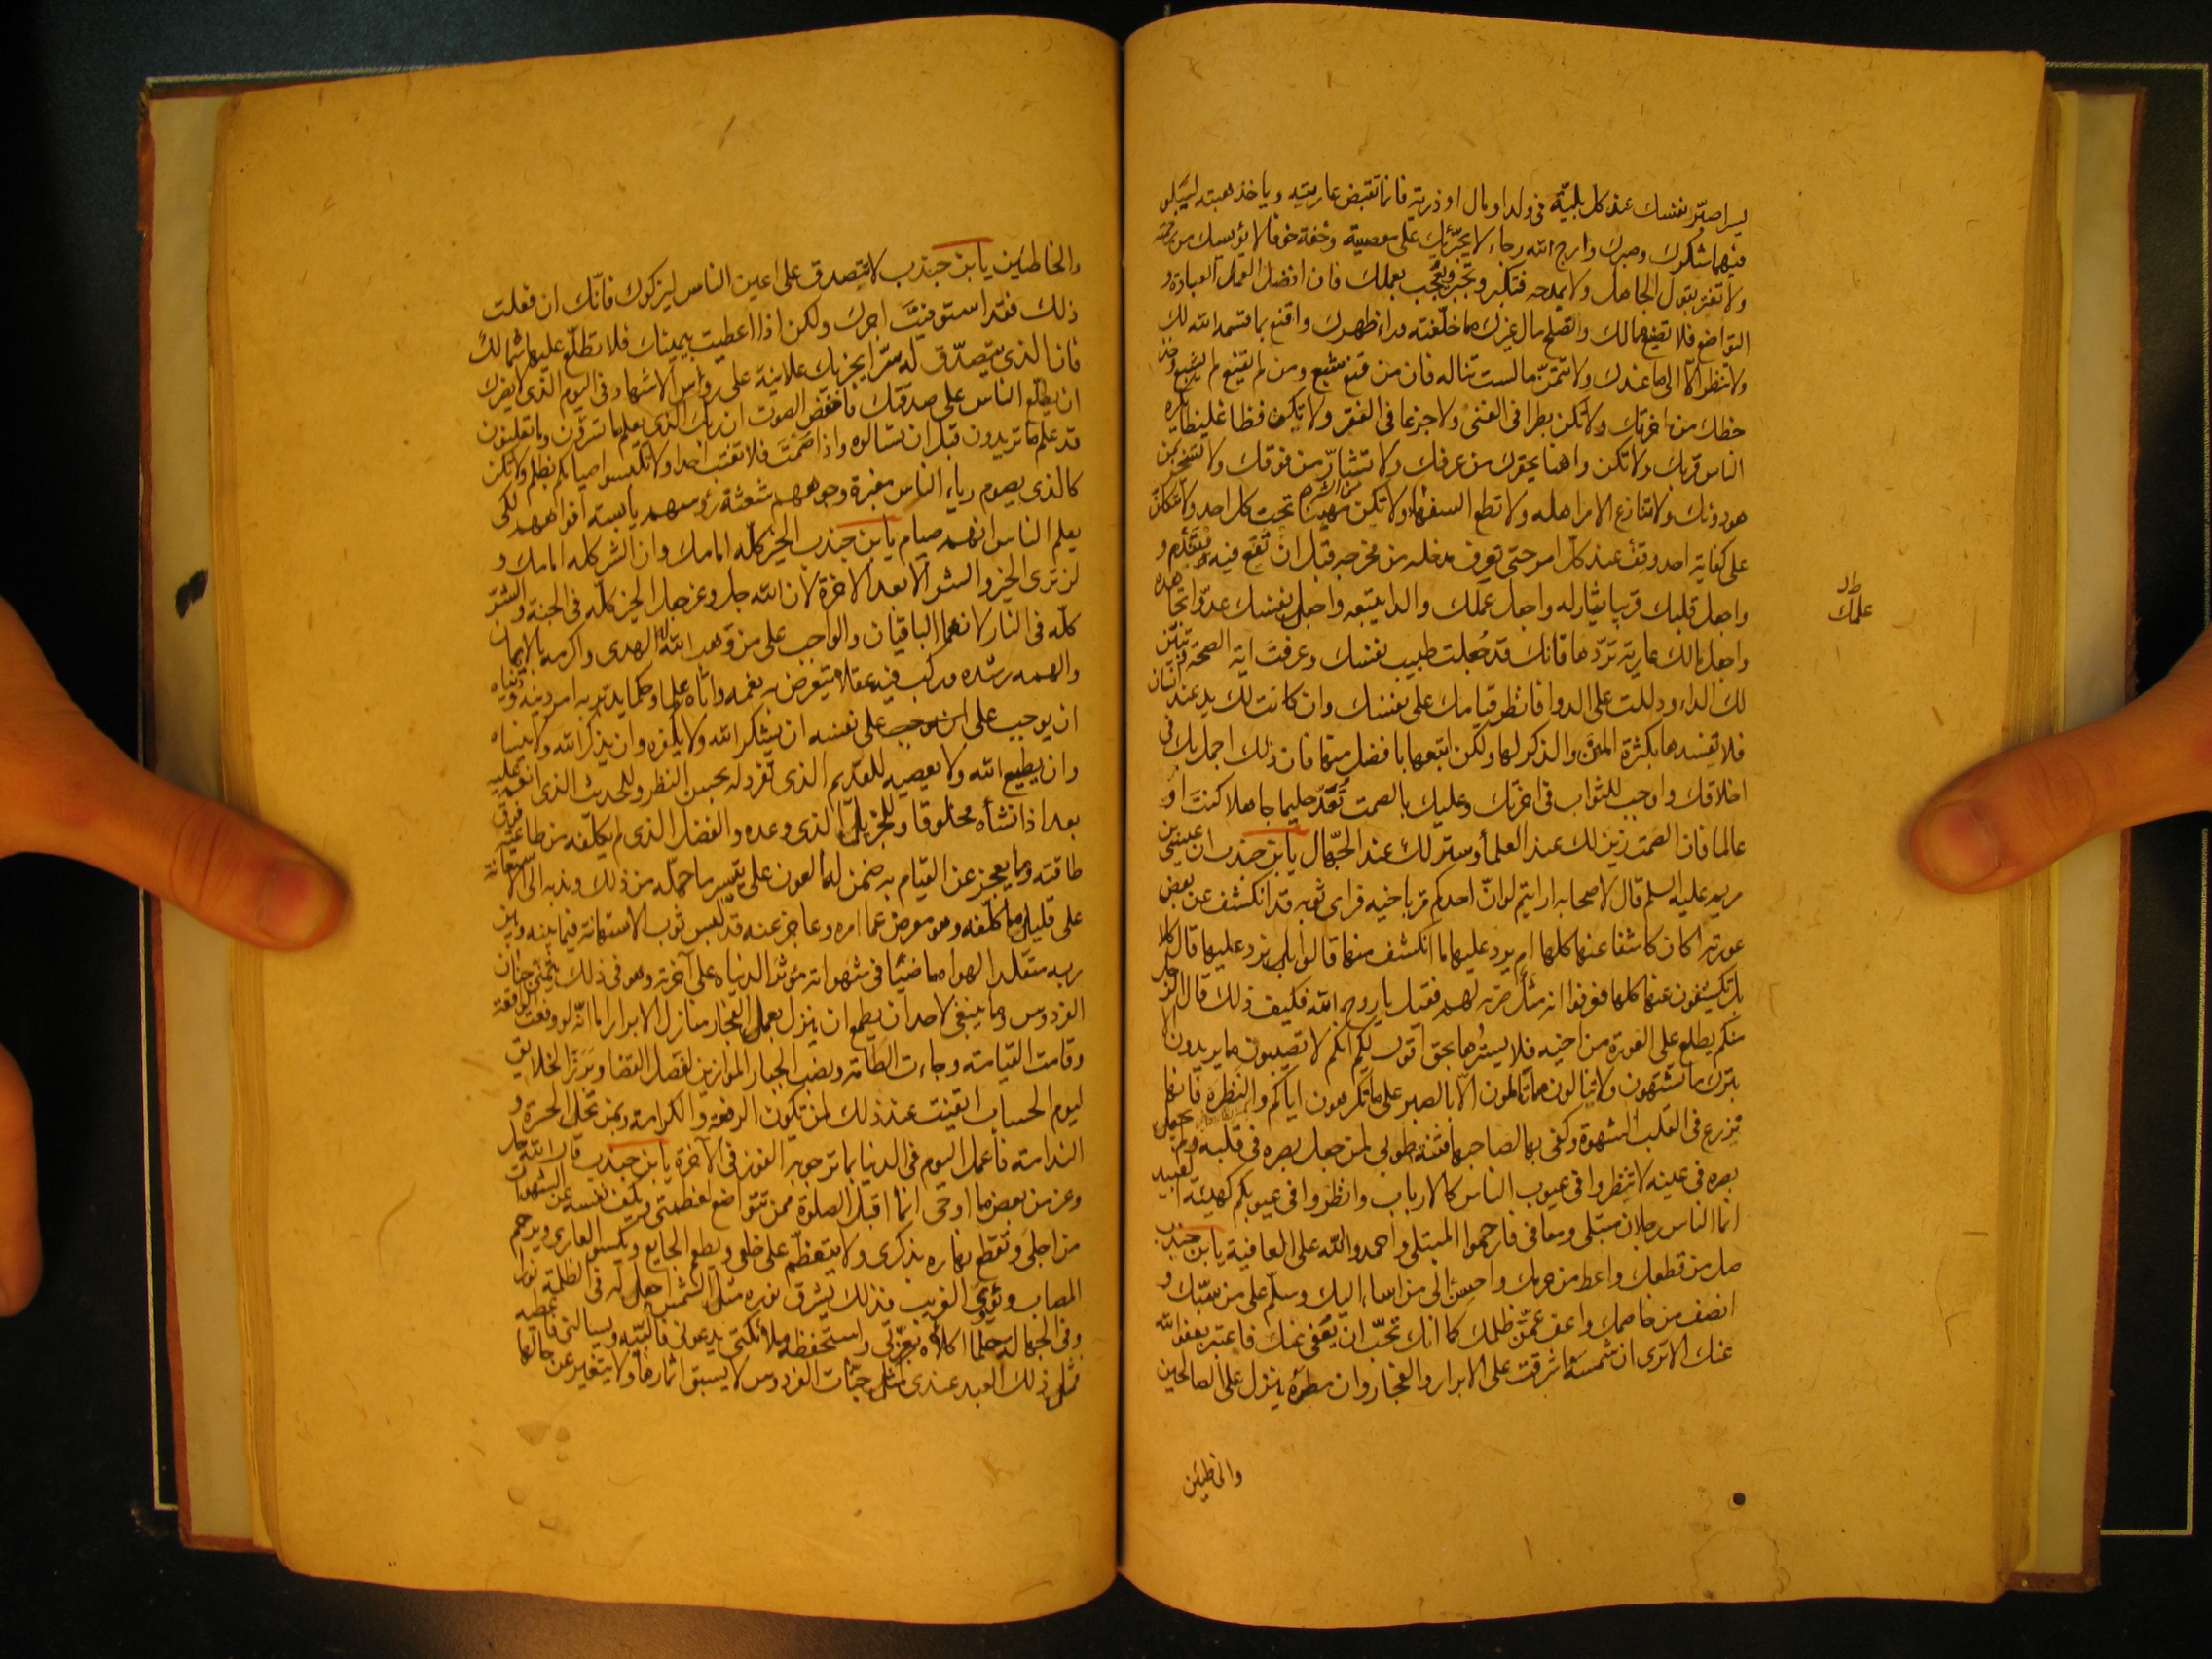 ليسرا صبّر نفسك عند كل بليّة فى ولد او مال او ذرية فانما تقبض عاريته وياخذ هبته ليبلو
فيهما شكرك وصبرك وارج الله رجاء لا يجرّئك على معصية وخفه خوفا لا يؤيسك من رحمته
ولا تغتر بقول الجاهل ولا بمدحه فتكبر وتجبر وتعجب بعملك فان افضل العمل العبادة و
التواضع فلا تضيع مالك وتصلح مال غيرك مما خلّفته وراء ظهرك واقنع بما قسمه الله لك
ولا تنظر الّا الى ما عندك ولا تتمنّ ما لست تناله فان من قنع شبع ومن لم يقنع لم يشبع وخذ
حظك من اخرتك ولا تكن بطرا فى الغنى ولا جزعا فى الفقر ولا تكن فظا غليظا يكره
الناس قربك ولا تكن واهنا يحقرك من عرفك ولا تشارّ من فوقك ولا تسخر بمن
هو دونك ولا تنازع الامر اهله ولا تطع السفهاء ولا تكن مهينا تحت كل احد ولا تتكلنّ
على كفاية احد وقف عند كل امر حتى تعرف مدخله من مخرجه قبل ان تقع فيه فتندم و
واجعل قلبك قريبا تشاركه واجعل عملك والدا تتبعه واجعل نفسك عدوا تجاهده
واجعل مالك عارية تردّها فانك قد جُعلت طبيب نفسك وعرفت اية الصحة وتبيّن
لك الداء ودللت على الدوا فانظر قيامك على نفسك وان كانت لك يد عند انسان
فلا تفسدها بكثرة المنّ والذكر لها ولكن اتبعها بافضل منها فان ذلك اجمل بك فى
اخلاقك واوجب للثواب فى اخرتك وعليك بالصمت تُعَدّ حليما جاهلا كنتَ او
عالما فان الصمت زين لك عند العلماء وستر لك عند الجهّال يا بن جندب ان عيسى بن
مريم عليه السلم قال لاصحابه ارايتم لو انّ احدكم مرّ باخيه فراى ثوبه قد انكشف عن بعض
عورته اكان كاشفا عنها كلها ام يرد عليها ما انكشف منها قالوا بل يرد عليها قال كلا
بل تكشفون عنها كلها فعرفوا انه مثل ضربه لهم فقيل يا روح الله فكيف ذلك قال الرجل
منكم يطلع على العورة من اخيه فلا يسترها بحق اقول لكم انكم لا تصيبون ما يريدون الا
بترك ما تشتهون ولا تنالون ما تاملون الّا بالصبر على ما تكرهون اياكم والنظرة فانها
تزرع فى القلب الشهوة وكفى بها لصاحبها فتنة طوبى لمن جعل بصره فى قلبه ولم يجعل
بصره فى عينه لا تنظروا فى عيوب الناس كالارباب وانظروا فى عيوبكم كهيئة العبيد
انما الناس رجلان مبتلى ومعافى فارحموا المبتلى واحمدوا الله على العافية يا بن جندب
صل من قطعك واعط من حرمك واحسن الى من اساء اليك وسلّم على من سبّك و
انصف من خاصمك واعف عمّن ظلمك كما انك تحبّ ان يعفى عنك فاعتبر بعفو الله
عنك الا ترى ان شمسه اشرقت على الابرار والفجار وان مطره ينزل على الصالحين
والخاطئين
ظ
علمك
والخاطئين يا بن جندب لا تتصدق على اعين الناس ليزكوك فانّك ان فعلت
ذلك فقد استوفيت اجرك ولكن اذا اعطيت بيمينك فلا تطلّع عليها شمالك
فان الذى تتصدّق له سرّا يجزيك علانية على رؤس الاشهاد فى اليوم الذى لا يضرك
ان يطلع الناس على صدقتك فاخفض الصوت ان ربك الذى يعلم ما تسرّون وما تعلنون
قد علم ما تريدون قبل ان تسالوه واذا صُمتَ فلا تغتب احدا ولا تلبسوا صيامكم بظلم ولا تكن
كالذى يصوم رياء الناس مغبرة وجوههم شعثة رؤسهم يابسة افواههم لكى
يعلم الناس انهم صيام يا بن جندب الخير كلّه امامك وان الشر كله امامك و
لن ترى الخير والشر الا بعد الاخرة لان الله جل وعز جعل الخير كلّه فى الجنة والشرّ
كلّه فى النار لانهما الباقيان والواجب على من وهب الله له الهدى واكرمه بالايمان
والهمه رشده وركب فيه عقلا يتعرض به نعمه واتاه علما وحكما يدبّر به امر دينه ودنياه
ان يوجب على ان يوجب على نفسه ان يشكر الله ولا يكفره وان يذكر الله ولا ينساه
وان يطيع الله ولا يعصيه للقديم الذى تفرد له بحسن النظر وللحدث الذى انعم عليه
بعد اذ انشأه مخلوقا وللجزيل الذى وعده والفضل الذى لم يكلّفه من طاعته فوق
طاقته وما يعجز عن القيام به ضمن له العون على تيسير ما حمّله من ذلك وندبه الى الاستعانة
على قليل ما كلّفه وهو معرض عما امره وعاجز عنه قد لبس ثوب الاستهانة فيما بينه وبين
ربه متقلّدا لهواه ماضيًا فى شهواته مؤثرا لدنياه على آخرته وهو فى ذلك يتمنّى جنان
الفردوس وما ينبغى لاحد ان يطمع ان ينزل بعمل الفجار منازل الابرار اما انّه لو وقعت الواقعة
وقامت القيامة وجاءت الطامّة ونصب الجبار الموازين لفصل القضاء وبَرَزَ الخلايق
ليوم الحساب ايقنت عند ذلك لمن تكون الرفعة والكرامة وبمن تحلّ الحسرة و
الندامة فاعمل اليوم فى الدنيا بما ترجو به الفوز فى الآخرة يا بن جندب قال الله جل
وعز من بعض ما اوحى انما اقبل الصلوة ممن تتواضع لعظمتى ويكف نفسه عن الشهوات
من اجلى وتقطع نهاره بذكرى ولا يتعظّم على خلقى ويطعم الجايع ويكسو العارى ويرحم
المصاب ويؤوى الغريب فذلك يشرق نوره مثل الشمس اجعل له فى الظلمة نورا
وفى الجهالة حلما اكلأه بعزّتى واستحفظه ملائكتى يدعونى فالبّيه ويسالنى فاعطيه
فمثل ذلك العبد عندى كمثل جنّات الفردوس لا يسبق اثمارها ولا يتغير عن حالها